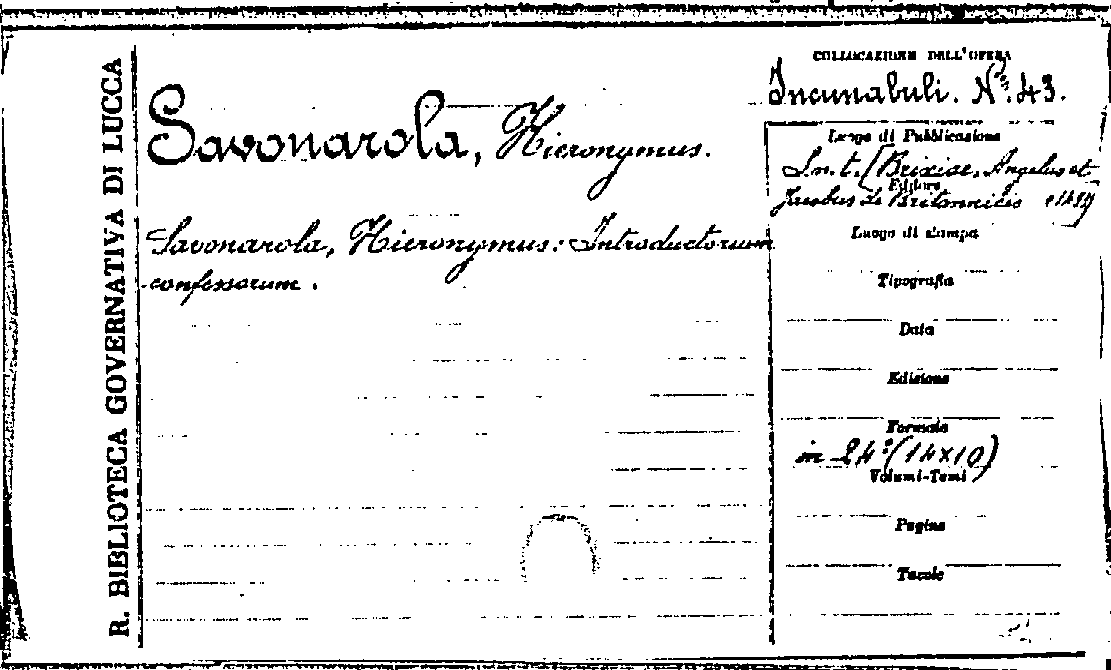 R. BIBLIOTECA GOVERNATIVA DI LUCCA
Savonarola, Hieronymus.
Savonarola, Hieronymus: Introductorium
confessorum.
COLLOCAZIONE DELL'OPERA
Incunabuli. Nº. 43.
Luogo di Pubblicazione
S.n.t. (Brixiae, Angelus et
Editore
Jacobus de Britannicis
Luogo di stampa
Tipografia
Data
Edizione
Formato
in 24º (14x10)
Volumi-Tomi
Pagine
Tavole